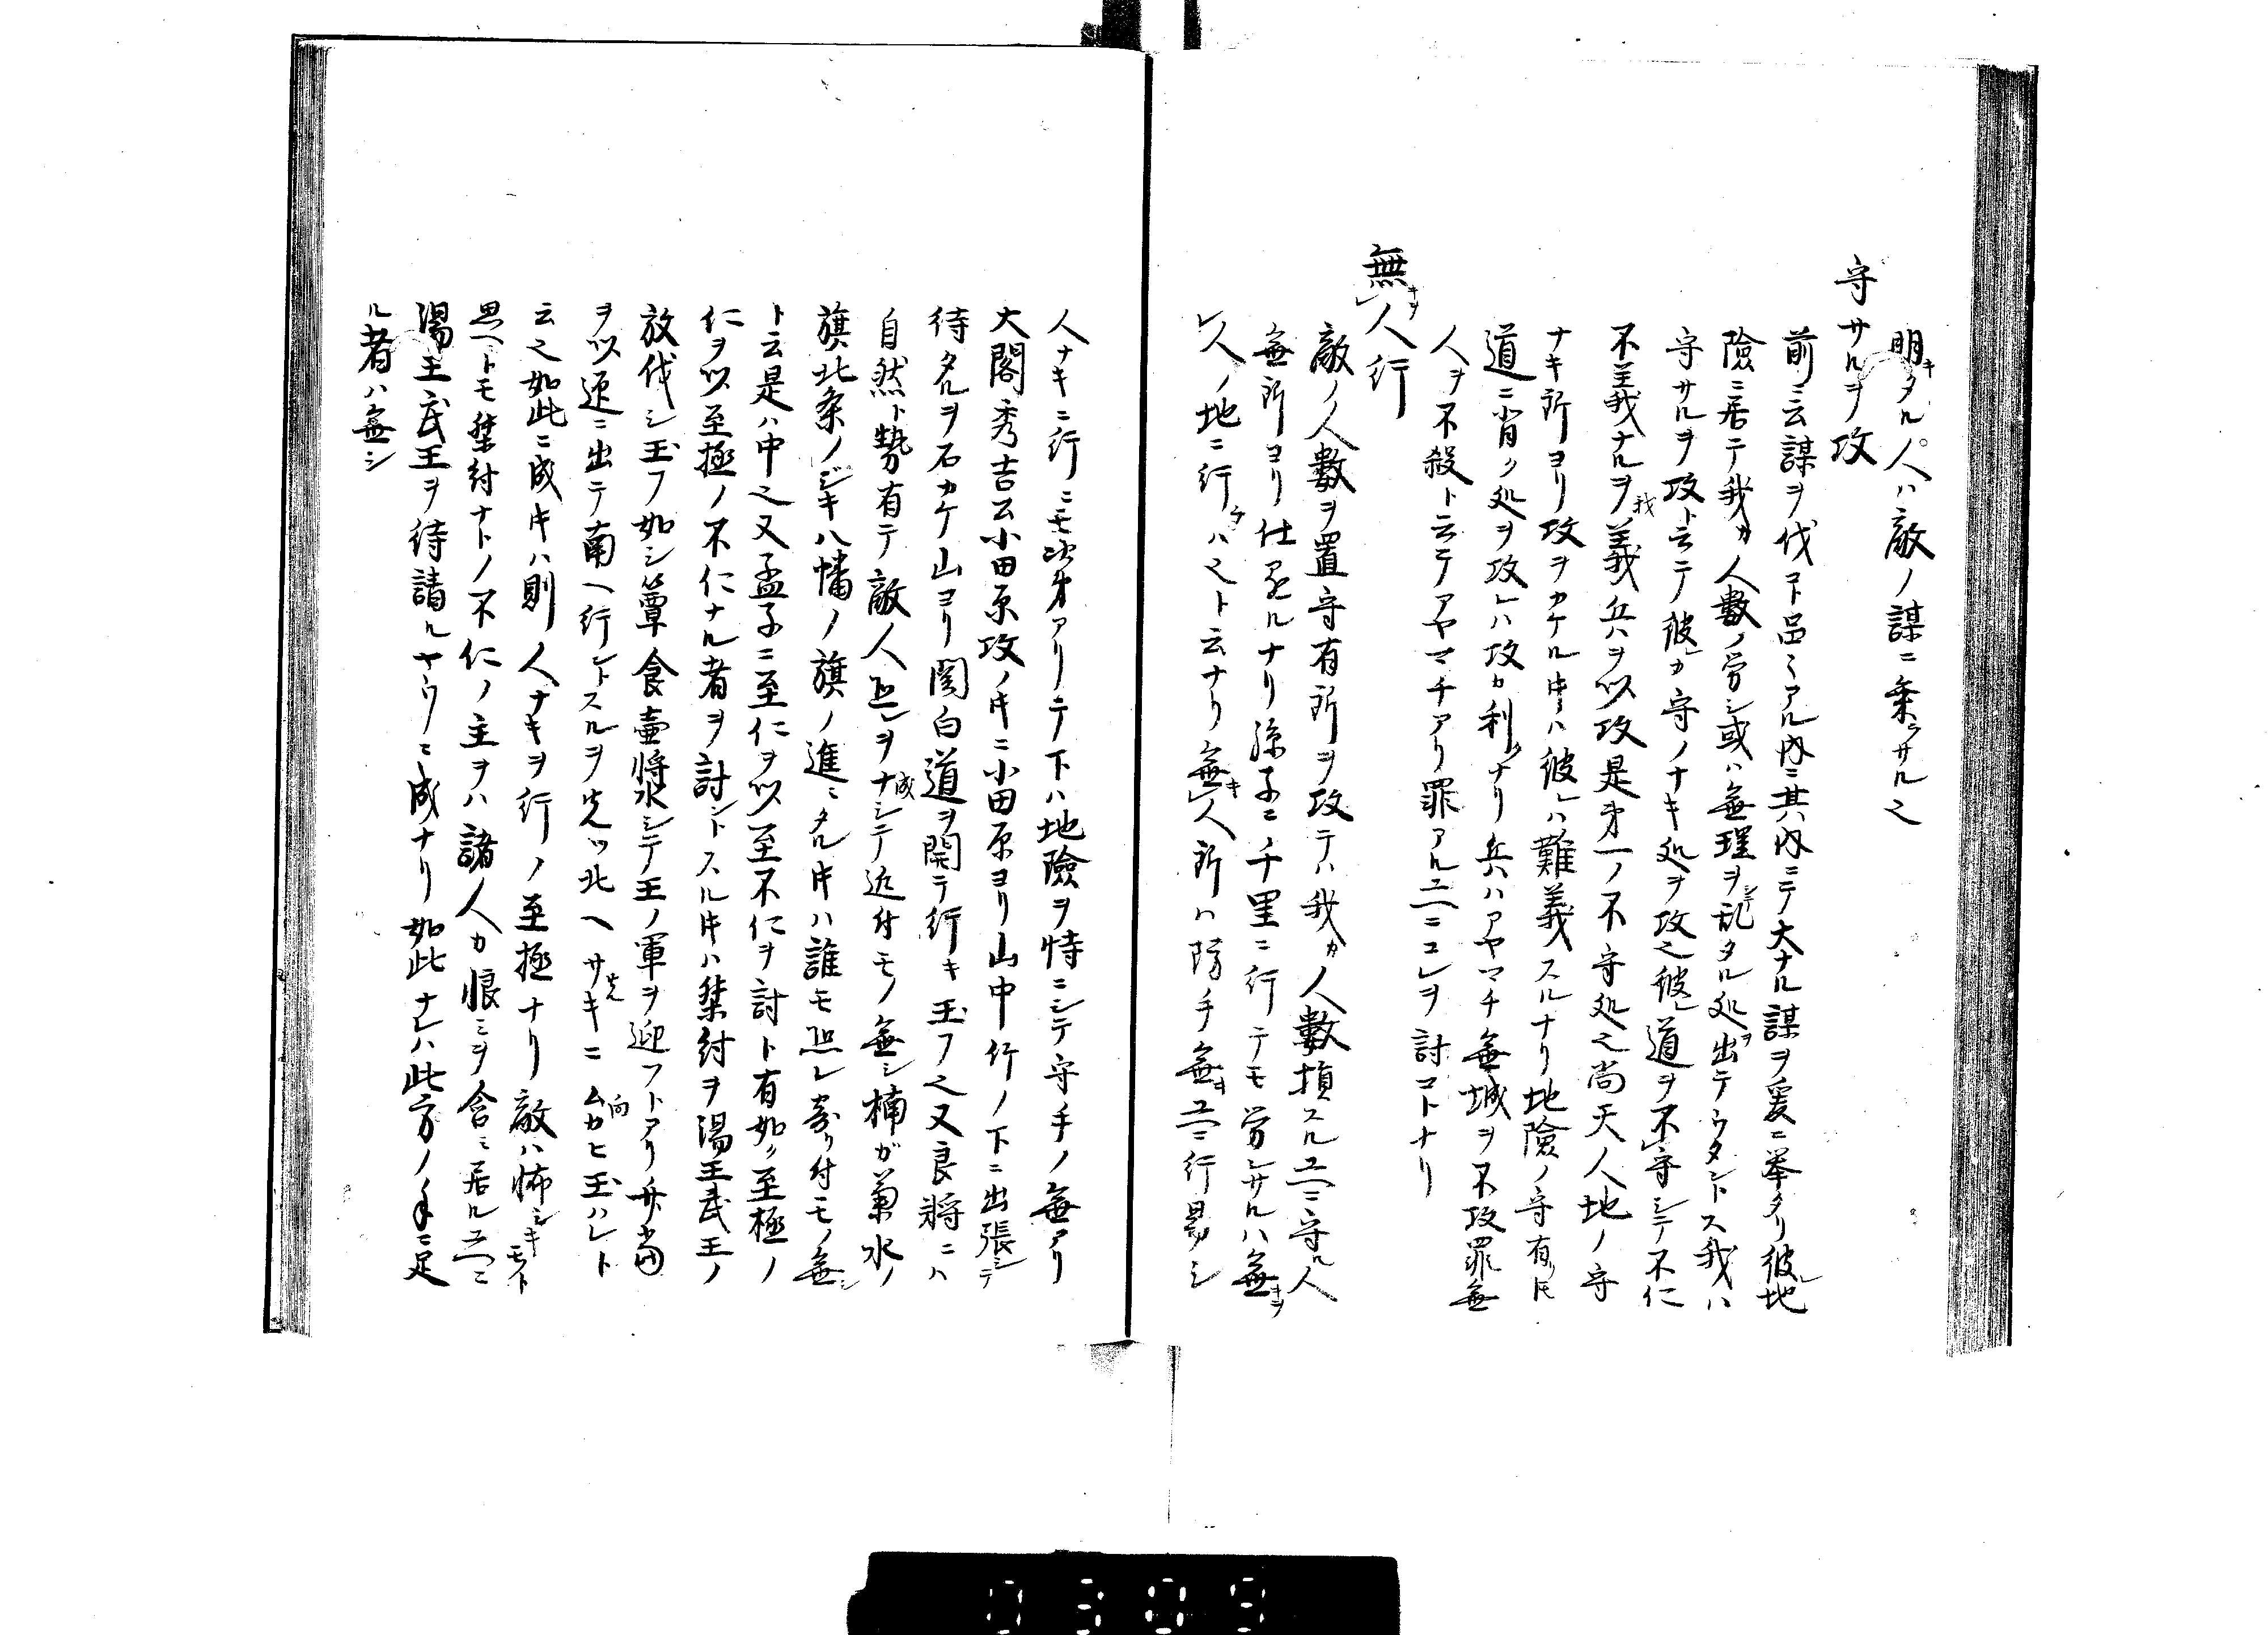 明キタル人ハ敵ノ謀ニ乗ラサル之
守サルヲ攻
前ニ云謀ヲ伐コト品々アル内ニ其内ニテ大ナル謀ヲ爰ニ挙タリ彼レ地
險ニ居テ我カ人數ノ労シ或ハ無理ヲシ乱タル処ヲ出テウタントス我ハ
守サルヲ攻ト云テ彼レカ守ノナキ処ヲ攻之彼レ道ヲ不守シテ不仁
不義ナルヲ我義兵ヲ以攻是第一ノ不守処之尚天人地ノ守
ナキ所ヨリ攻ヲカケル时ハ彼レハ難義スルナリ地險ノ守有ル圧
道ニ背ク処ヲ攻レハ攻カ利ナリ兵ハアヤマチ無城ヲ不攻罪無
人ヲ不殺ト云テアヤマチアリ罪アルユヘニコレヲ討コトナリ
無キヲ人行
敵ノ人數ヲ置守有所ヲ攻テハ我カ人數損スルユヘニ守ル人
無所ヨリ仕ルナリ孫子ニ千里ニ行テモ労レサルハ無キヲ
人ノ地ニ行ケハ之ト云ナリ無キ人所ハ防手無キユヘニ行易シ
人ナキニ行ニモ次第アリテノ下ハ地險ヲ恃ニシテ守手ノ無アリ
大閤秀吉公小田原攻ノ时ニ小田原ヨリ山中行ノ下ニ出張シテ
待タルヲ石カケ山ヨリ関白道ヲ開テ行キ玉フ之又良將ニハ
自然ト勢有テ敵人恐レヲナシテ近付モノ無シ楠ガ菊水ノ
旗北条ノジキ八幡ノ旗ノ進ミタル时ハ誰モ恐レ寄リ付モノ無シ
ト云是ハ中之又孟子ニ至仁ヲ以至不仁ヲ討ト有如ク至極ノ
仁ヲ以至極ノ不仁ナル者ヲ討ントスル时ハ桀紂ヲ湯王武王ノ
放伐シ玉フ如シ簞食壷漿シテ王ノ軍ヲ迎フトアリ
ヲ以迎ニ出テ南ヘ行ントスルヲ先ツ北ヘサキニムカヒ玉ハレト
云之如此ニ成时ハ則人ナキヲ行ノ至極ナリ敵ハ怖シキモノト
思ヘトモ桀紂ナトノ不仁ノ主ヲハ諸人カ恨ミヲ含ミ居ルユヘニ
湯王武王ヲ待請ルヤウニ成ナリ如此ナレハ此方ノ手ニ足
ル者ハ無シ
0309